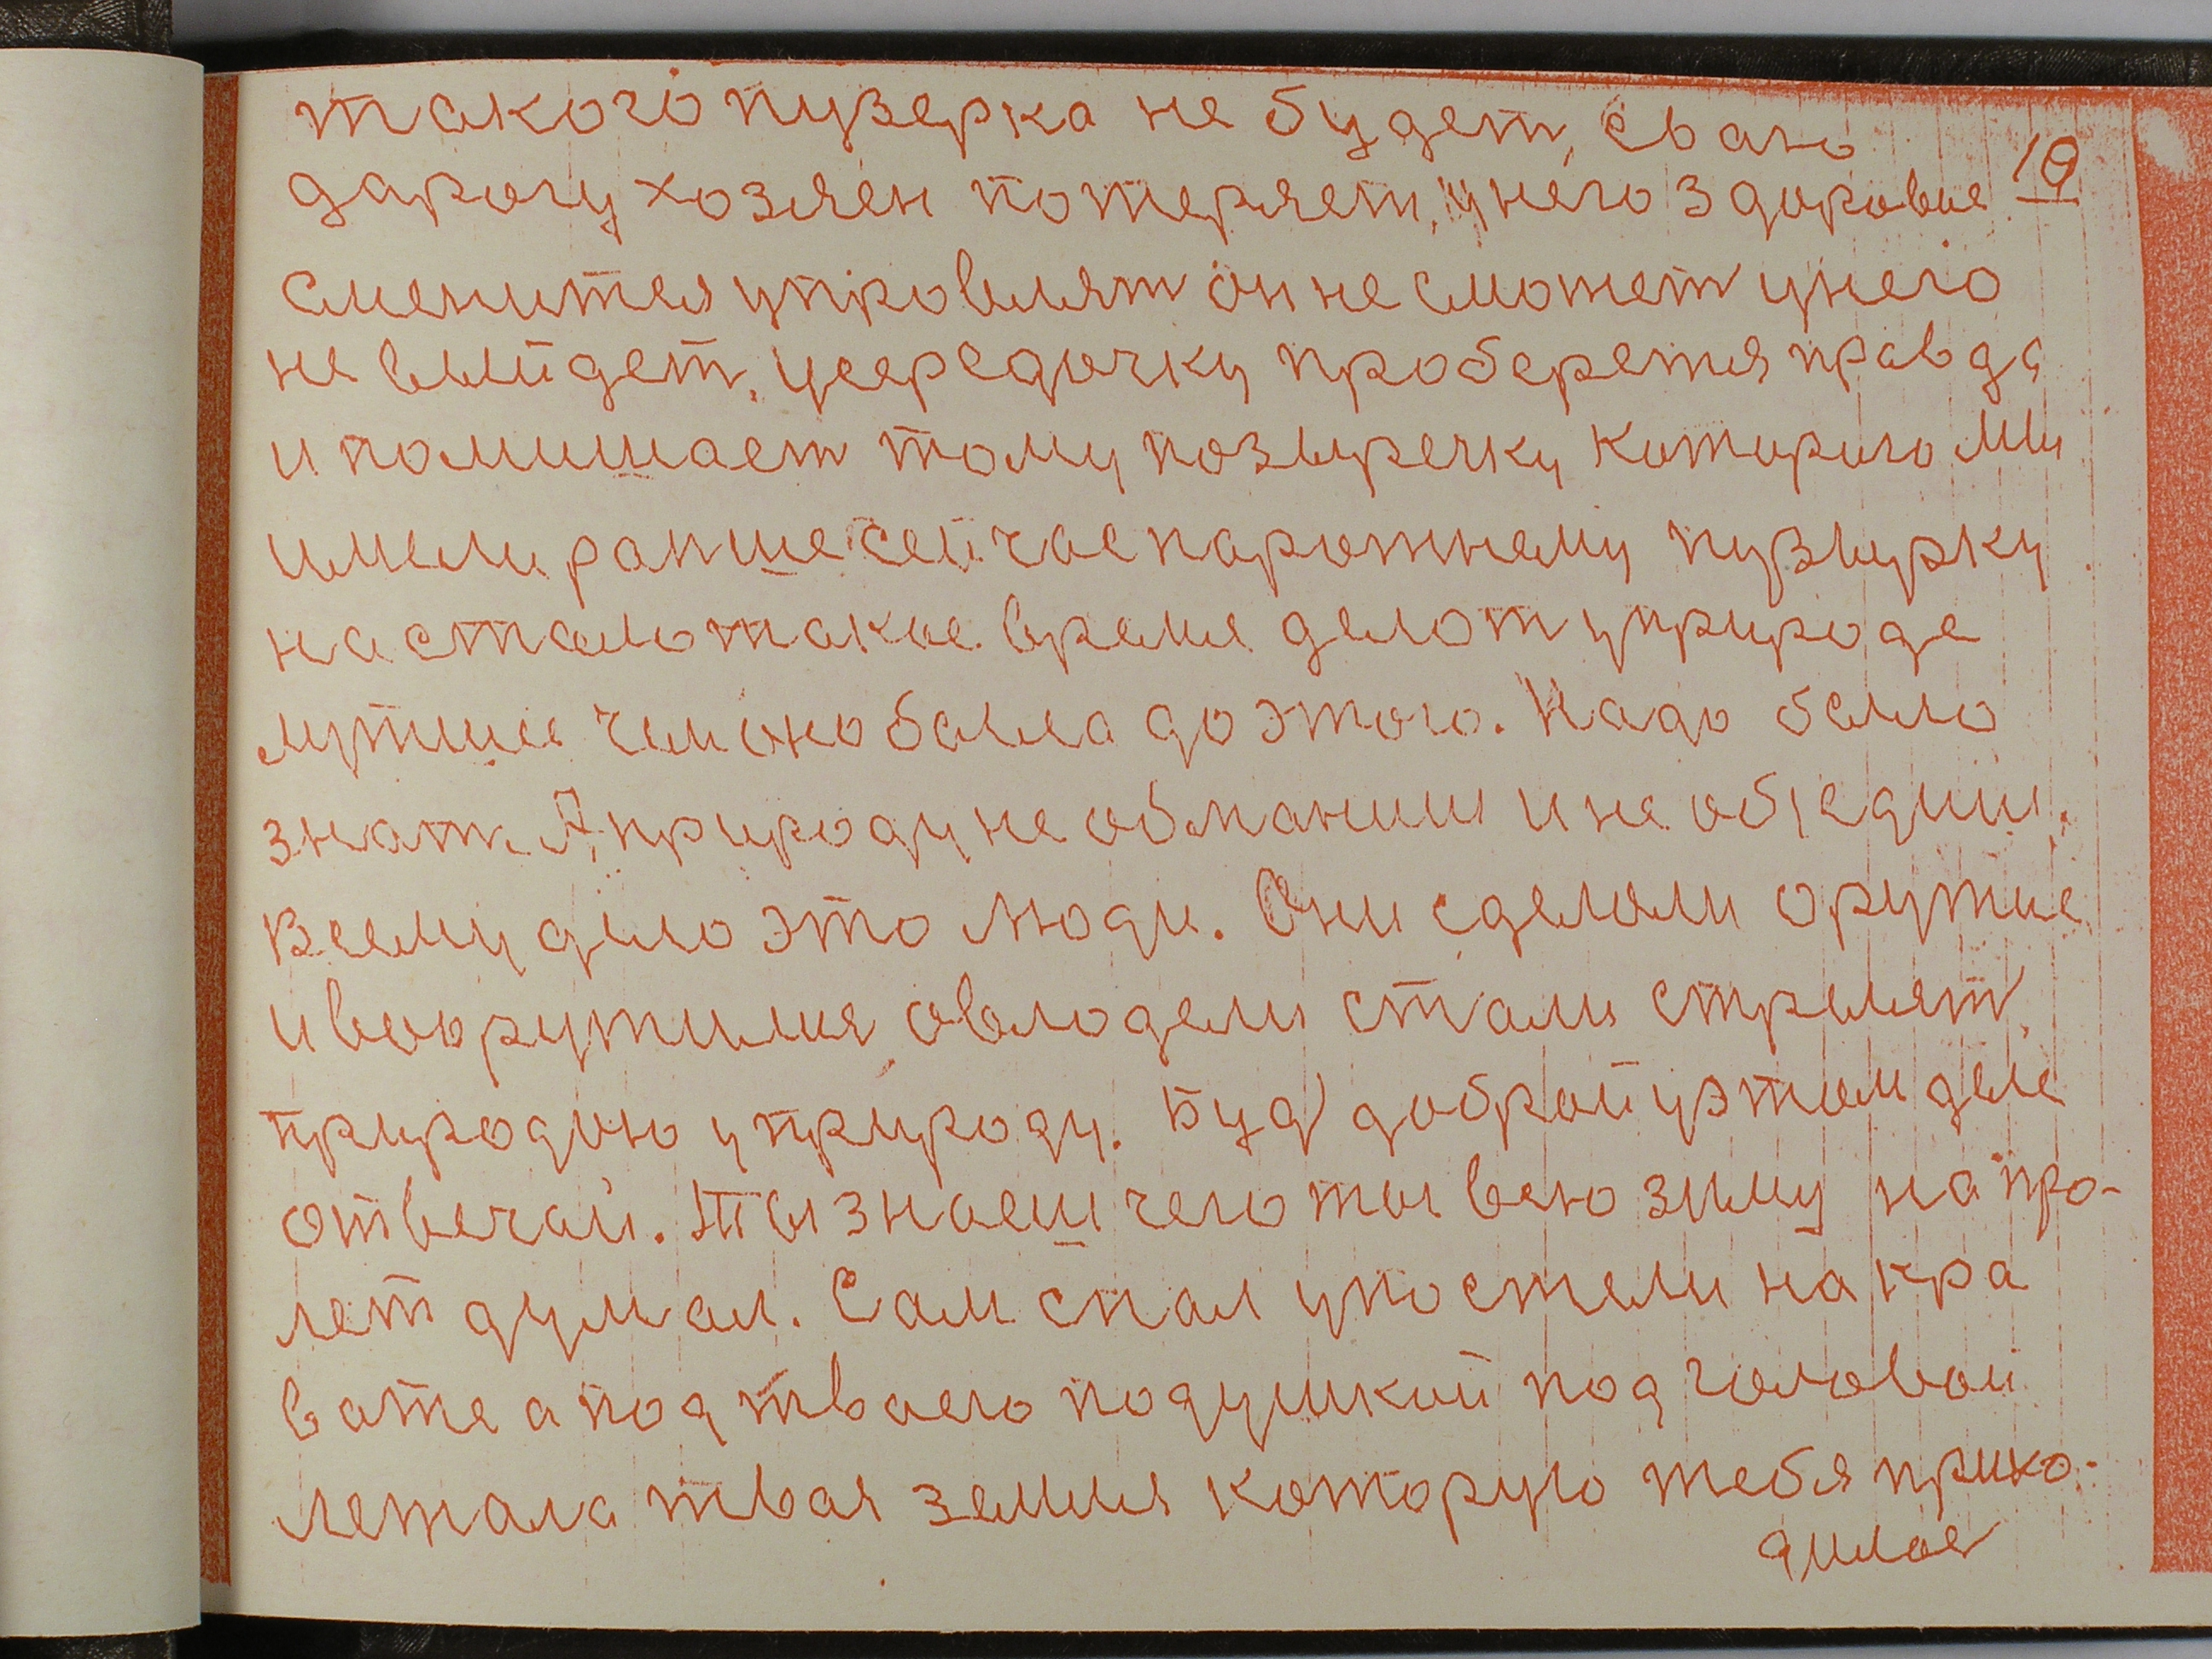 такого пузерка не будет, сваю
дарогу хозяен потеряет, у него здоровие 10
сменится управлят он не сможет унего
не выйдет, усередочку проберется правда
и помишает тому позыречку которого ми
имели ранше сейчас парожнему пузырку
настало такое время делот уприроде
лутшее чем оно балла до этого. Надо было
знат. А природу не обманиш и не обједиш.
Всему дило это люди. Они сделали оружие
и вооружилися овлодели стали стрелят,
природою уприроду. Буд добрай уэтом деле
отвечай. Ты знаеш чего ты всю зиму на про-
лет думал. Сам спал упостели на кра
вате а под тваею подушкой под головой
летала твая землия которую тебя прихо-
дилос